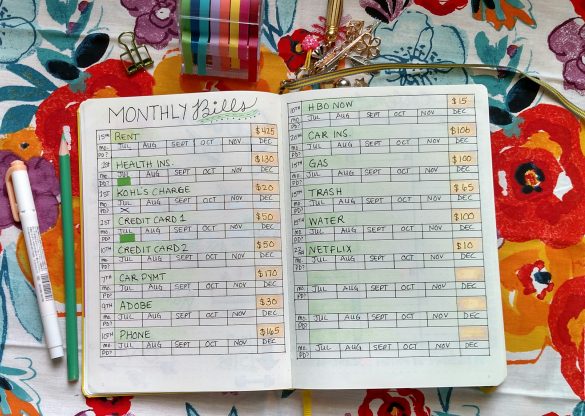 MONTHLY Bills
15TH RENT $425
MO. JUL AUG SEPT OCT NOV DEC
PD?
21ST HEALTH INS. $130
MO. JUL AUG SEPT OCT NOV DEC
PD?
21ST KOHL'S CHARGE $20
MO. JUL AUG SEPT OCT NOV DEC
PD?
21ST CREDIT CARD 1 $50
MO. JUL AUG SEPT OCT NOV DEC
PD?
10TH CREDIT CARD 2 $50
MO. JUL AUG SEPT OCT NOV DEC
PD?
7TH CAR PYMT $170
MO. JUL AUG SEPT OCT NOV DEC
PD?
9TH ADOBE $30
MO. JUL AUG SEPT OCT NOV DEC
PD?
15TH PHONE $145
MO. JUL AUG SEPT OCT NOV DEC
PD?
HBO NOW $15
MO. JUL AUG SEPT OCT NOV DEC
PD?
CAR INS. $106
MO. JUL AUG SEPT OCT NOV DEC
PD?
15TH GAS $100
MO. JUL AUG SEPT OCT NOV DEC
PD?
15TH TRASH $65
MO. JUL AUG SEPT OCT NOV DEC
PD?
15TH WATER $100
MO. JUL AUG SEPT OCT NOV DEC
PD?
NETFLIX $10
MO. JUL AUG SEPT OCT NOV DEC
PD?
MO. JUL AUG SEPT OCT NOV DEC
PD?
MO. JUL AUG SEPT OCT NOV DEC
PD?
MO. JUL AUG SEPT OCT NOV DEC
PD?